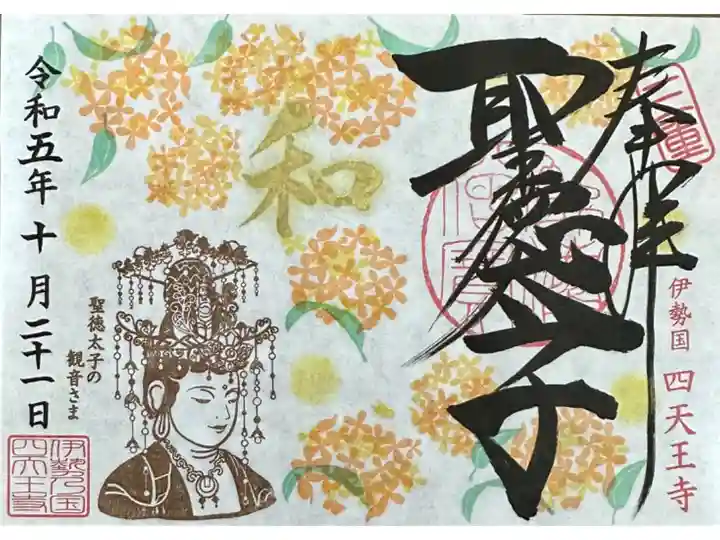 奉拝
三重
聖徳太子
伊勢国 四天王寺
和
聖徳太子の
観音さま
令和五年十月二十一日
伊勢之国
四天王寺